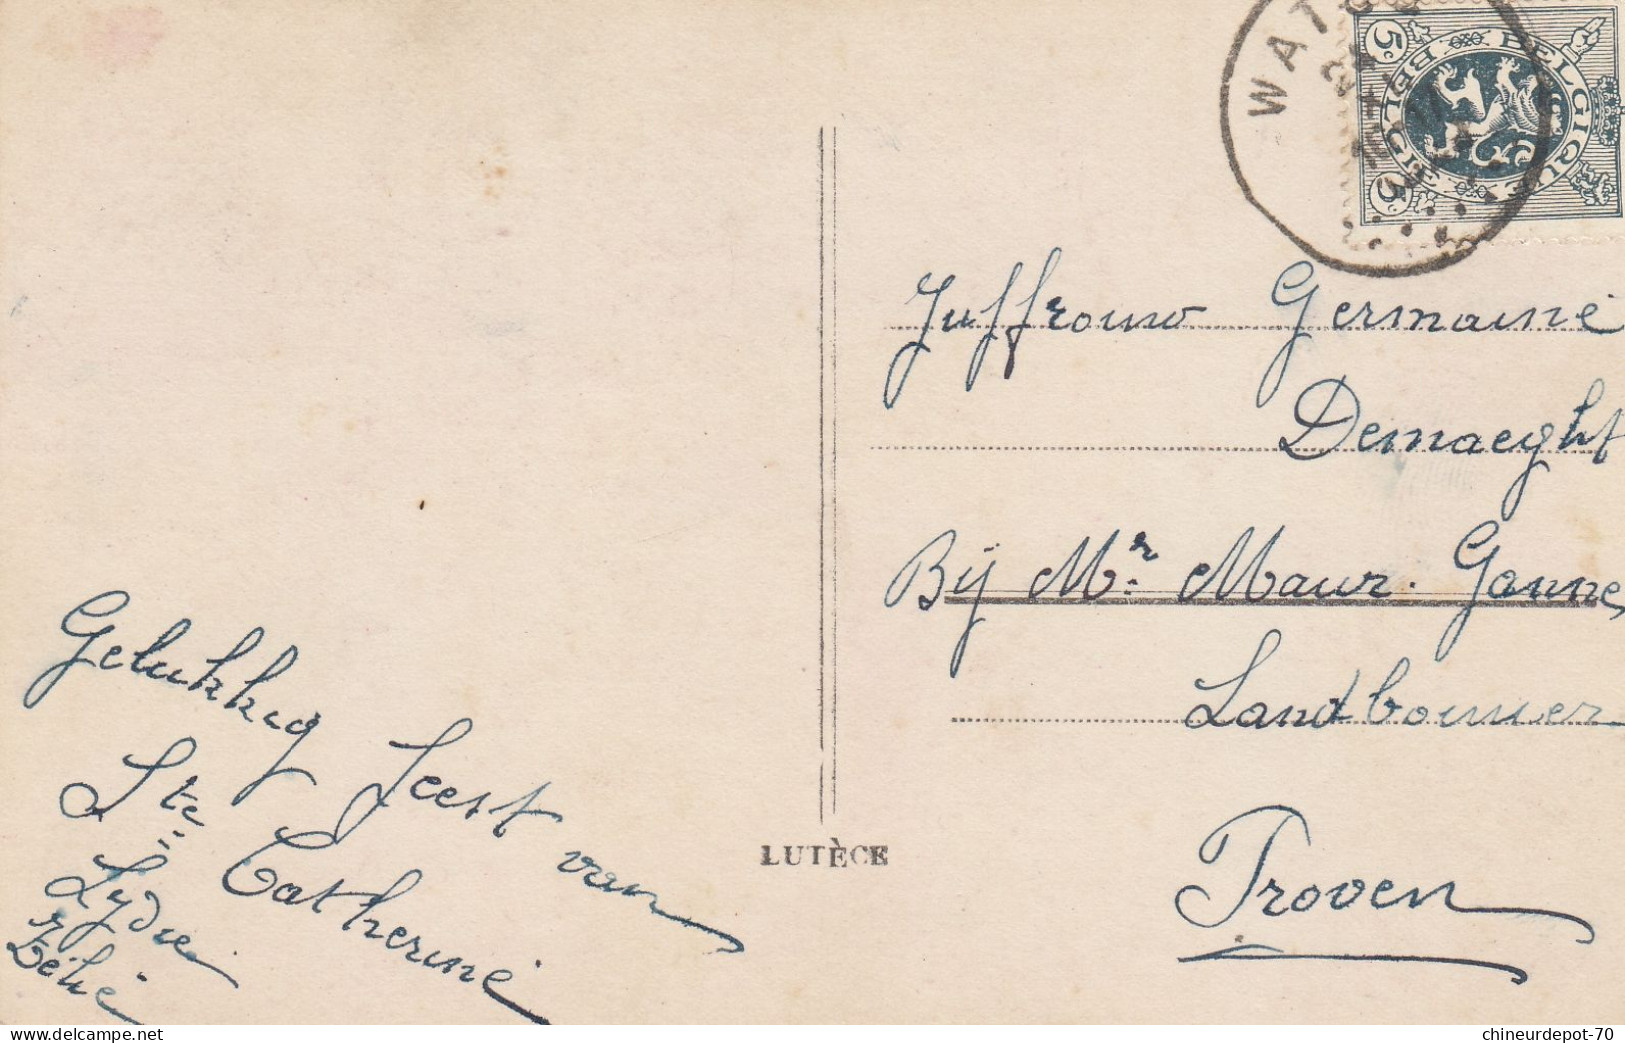 WATOU
5c BELGIQUE
BELGIË 5c
Juffrouw Germaine
Demaeght
Bij Mr. Maur. Ganne,
Landbouwer
Proven
Gelukkig feest van
Ste Catherine
Lydie
Zélie
LUTÈCE
delcampe.net
chineurdepot-70